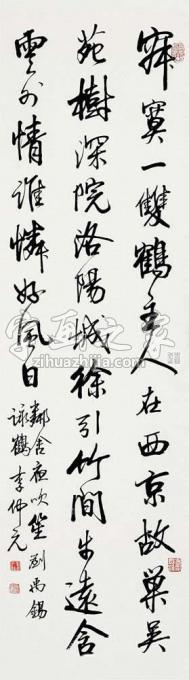 寂寞一雙鶴主人在西京故巢吳
苑樹深院洛陽城徐引竹間步遠含
雲外情誰憐好風日
鄰舍夜吹笙 劉禹錫
詠鶴 李
字画之家
www.zihuazhijia.com